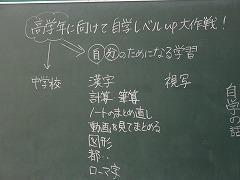 高学年に向けて自学レベルup大作戦!
自分のためになる学習
中学校
漢字
視写
計算 筆算
ノートのまとめ直し
動画を見てまとめる
図形
都、
ローマ字
自学の話